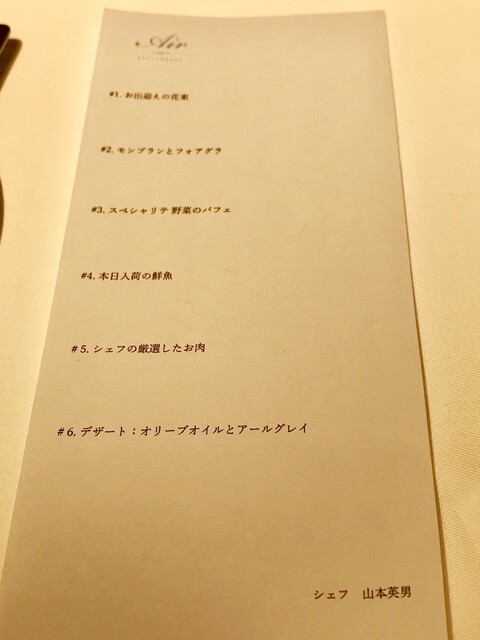 Air
#1. お出迎えの花束
#2. モンブランとフォアグラ
#3. スペシャリテ 野菜のパフェ
#4. 本日入荷の鮮魚
# 5. シェフの厳選したお肉
# 6. デザート：オリーブオイルとアールグレイ
シェフ　山本英男